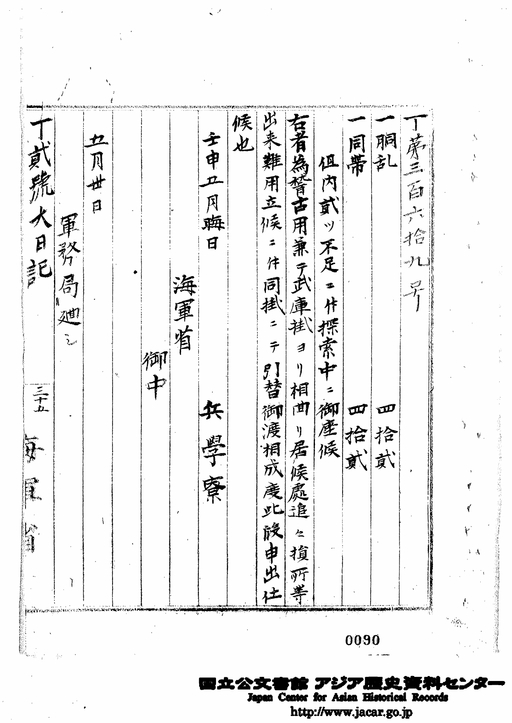 丁第三百六拾九号
一胴乱 四拾貮
一同帯 四拾貮
但内貮ツ不足ニ付探索中ニ御座候
右者為稽古用兼テ武庫掛ヨリ相曲リ居候處追々損所等
出来難用立候ニ付同掛ニテ引替御渡相成度此段申出仕
候也
壬申五月晦日
兵學寮
海軍省
御中
五月丗日
軍務局廻シ
丁貮號大日記
三十五
海軍省
0090
国立公文書館 アジア歴史資料センター
Japan Center for Asian Historical Records
http://www.jacar.go.jp